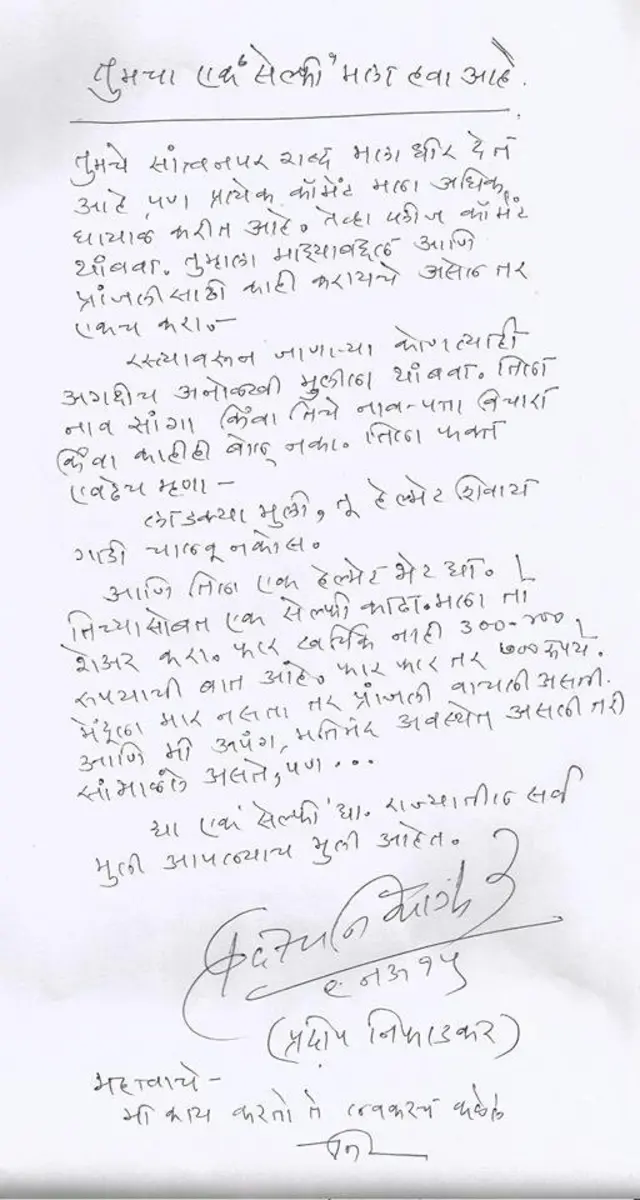 तुमचा एक "सेल्फी" मला हवा आहे.
तुमचे सांत्वनपर शब्द मला धीर देत
आहे, पण प्रत्येक कॉमेंट मला अधिक
घायाळ करीत आहे. तेव्हा प्लीज कॉमेंट
थांबवा. तुम्हाला माझ्याबद्दल आणि
प्रांजलीसाठी काही करायचे असेल तर
एकच करा.-
रस्त्यावरून जाणाऱ्या कोणत्याही
अगदीच अनोळखी मुलीला थांबवा. तिला
नाव सांगा किंवा तिचे नाव-पत्ता विचारा
किंवा काहीही बोलू नका. तिला फक्त
एवढेच म्हणा -
लाडक्या मुली, तू हेल्मेट शिवाय
गाडी चालवू नकोस.
आणि तिला एक हेल्मेट भेट द्या.
तिच्यासोबत एक सेल्फी काढा. मला तो
शेअर करा. फार खर्चिक नाही ३००-४००
रुपयाची बात आहे. फार फार तर ७०० रुपये.
मेंदूला मार नसता तर प्रांजली वाचली असती.
आणि मी अपंग, मतिमंद अवस्थेत असली तरी
सांभाळले असते, पण ...
द्या एक 'सेल्फी' द्या. राज्यातील सर्व
मुली आपल्याच मुली आहेत.
(प्रदीप निफाडकर)
महत्वाचे -
मी काय करतो ते लवकरच कळेल